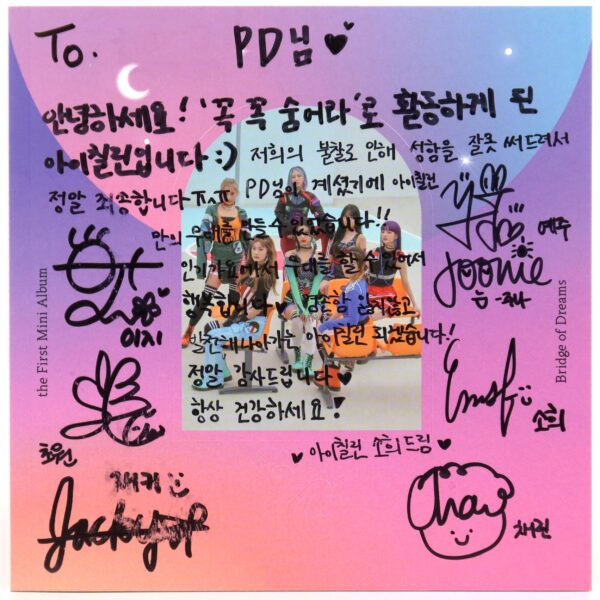 To. PD님♥
안녕하세요! '꼭 꼭 숨어라'로 활동하게 된
아이칠린입니다 :) 저희의 불찰로 인해 성함을 잘못 써드려서
정말 죄송합니다ㅠㅠ PD님이 계셨기에 아이칠린
만의 무대를 만들 수 있었습니다!!
인기가요에서 무대를 할 수 있어서
행복합니다♥ 겸손함 잃지않고
발전해나아가는 아이칠린 되겠습니다!
정말 감사드립니다♥
항상 건강하세요!
♥ 아이칠린 소희드림 ♥
예주
Joonie
-주니
이지
초원
재키
Jacky
소희
Chae
채린
the First Mini Album
Bridge of Dreams